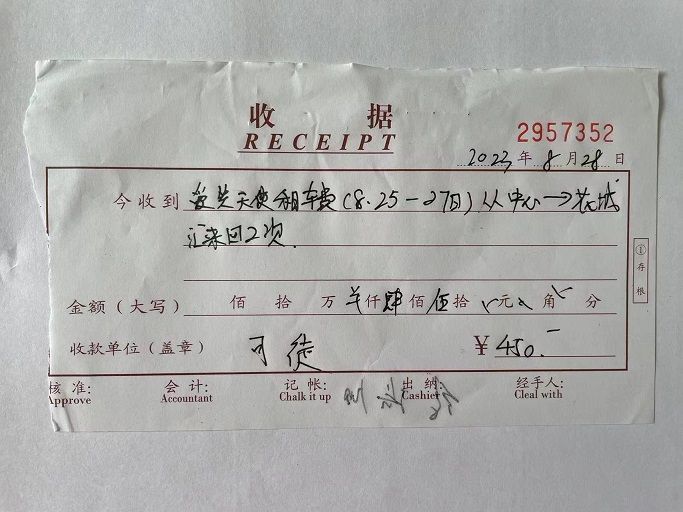 收 据
RECEIPT
2957352
2023年8月28日
今收到 天使租车费(8.25-27日)从中心→花城
汇来回2次.
①存根
金额(大写) 佰 拾 万 仟肆佰伍拾 元 角 分
收款单位(盖章) 可徒 ¥450.-
核准: 会计: 记帐: 出纳: 经手人:
Approve Accountant Chalk it up Cashier Cleal with